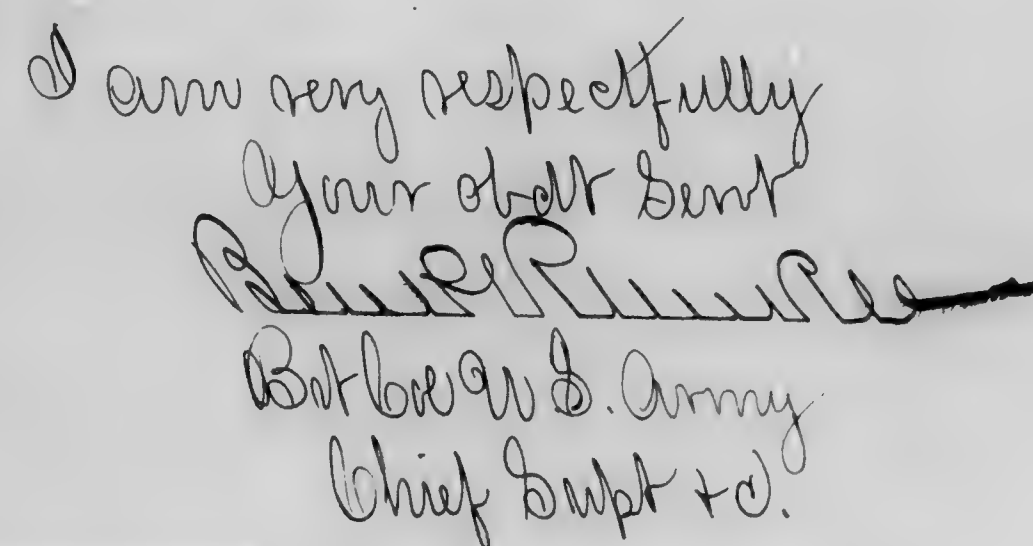 I am very respectfully
Your obdt Servt
Ben P Runkle
Bvt Col U S. Army
Chief Supt +c.